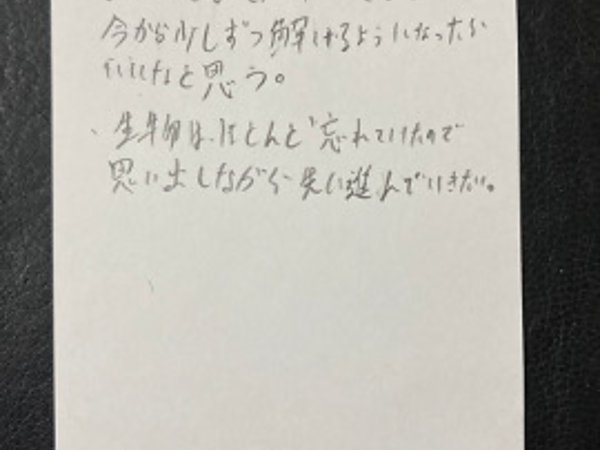 今から少しずつ解けるようになったら
いいなと思う。
、生物は、ほとんど忘れていたので
思い出しながら先に進んでいきたい。